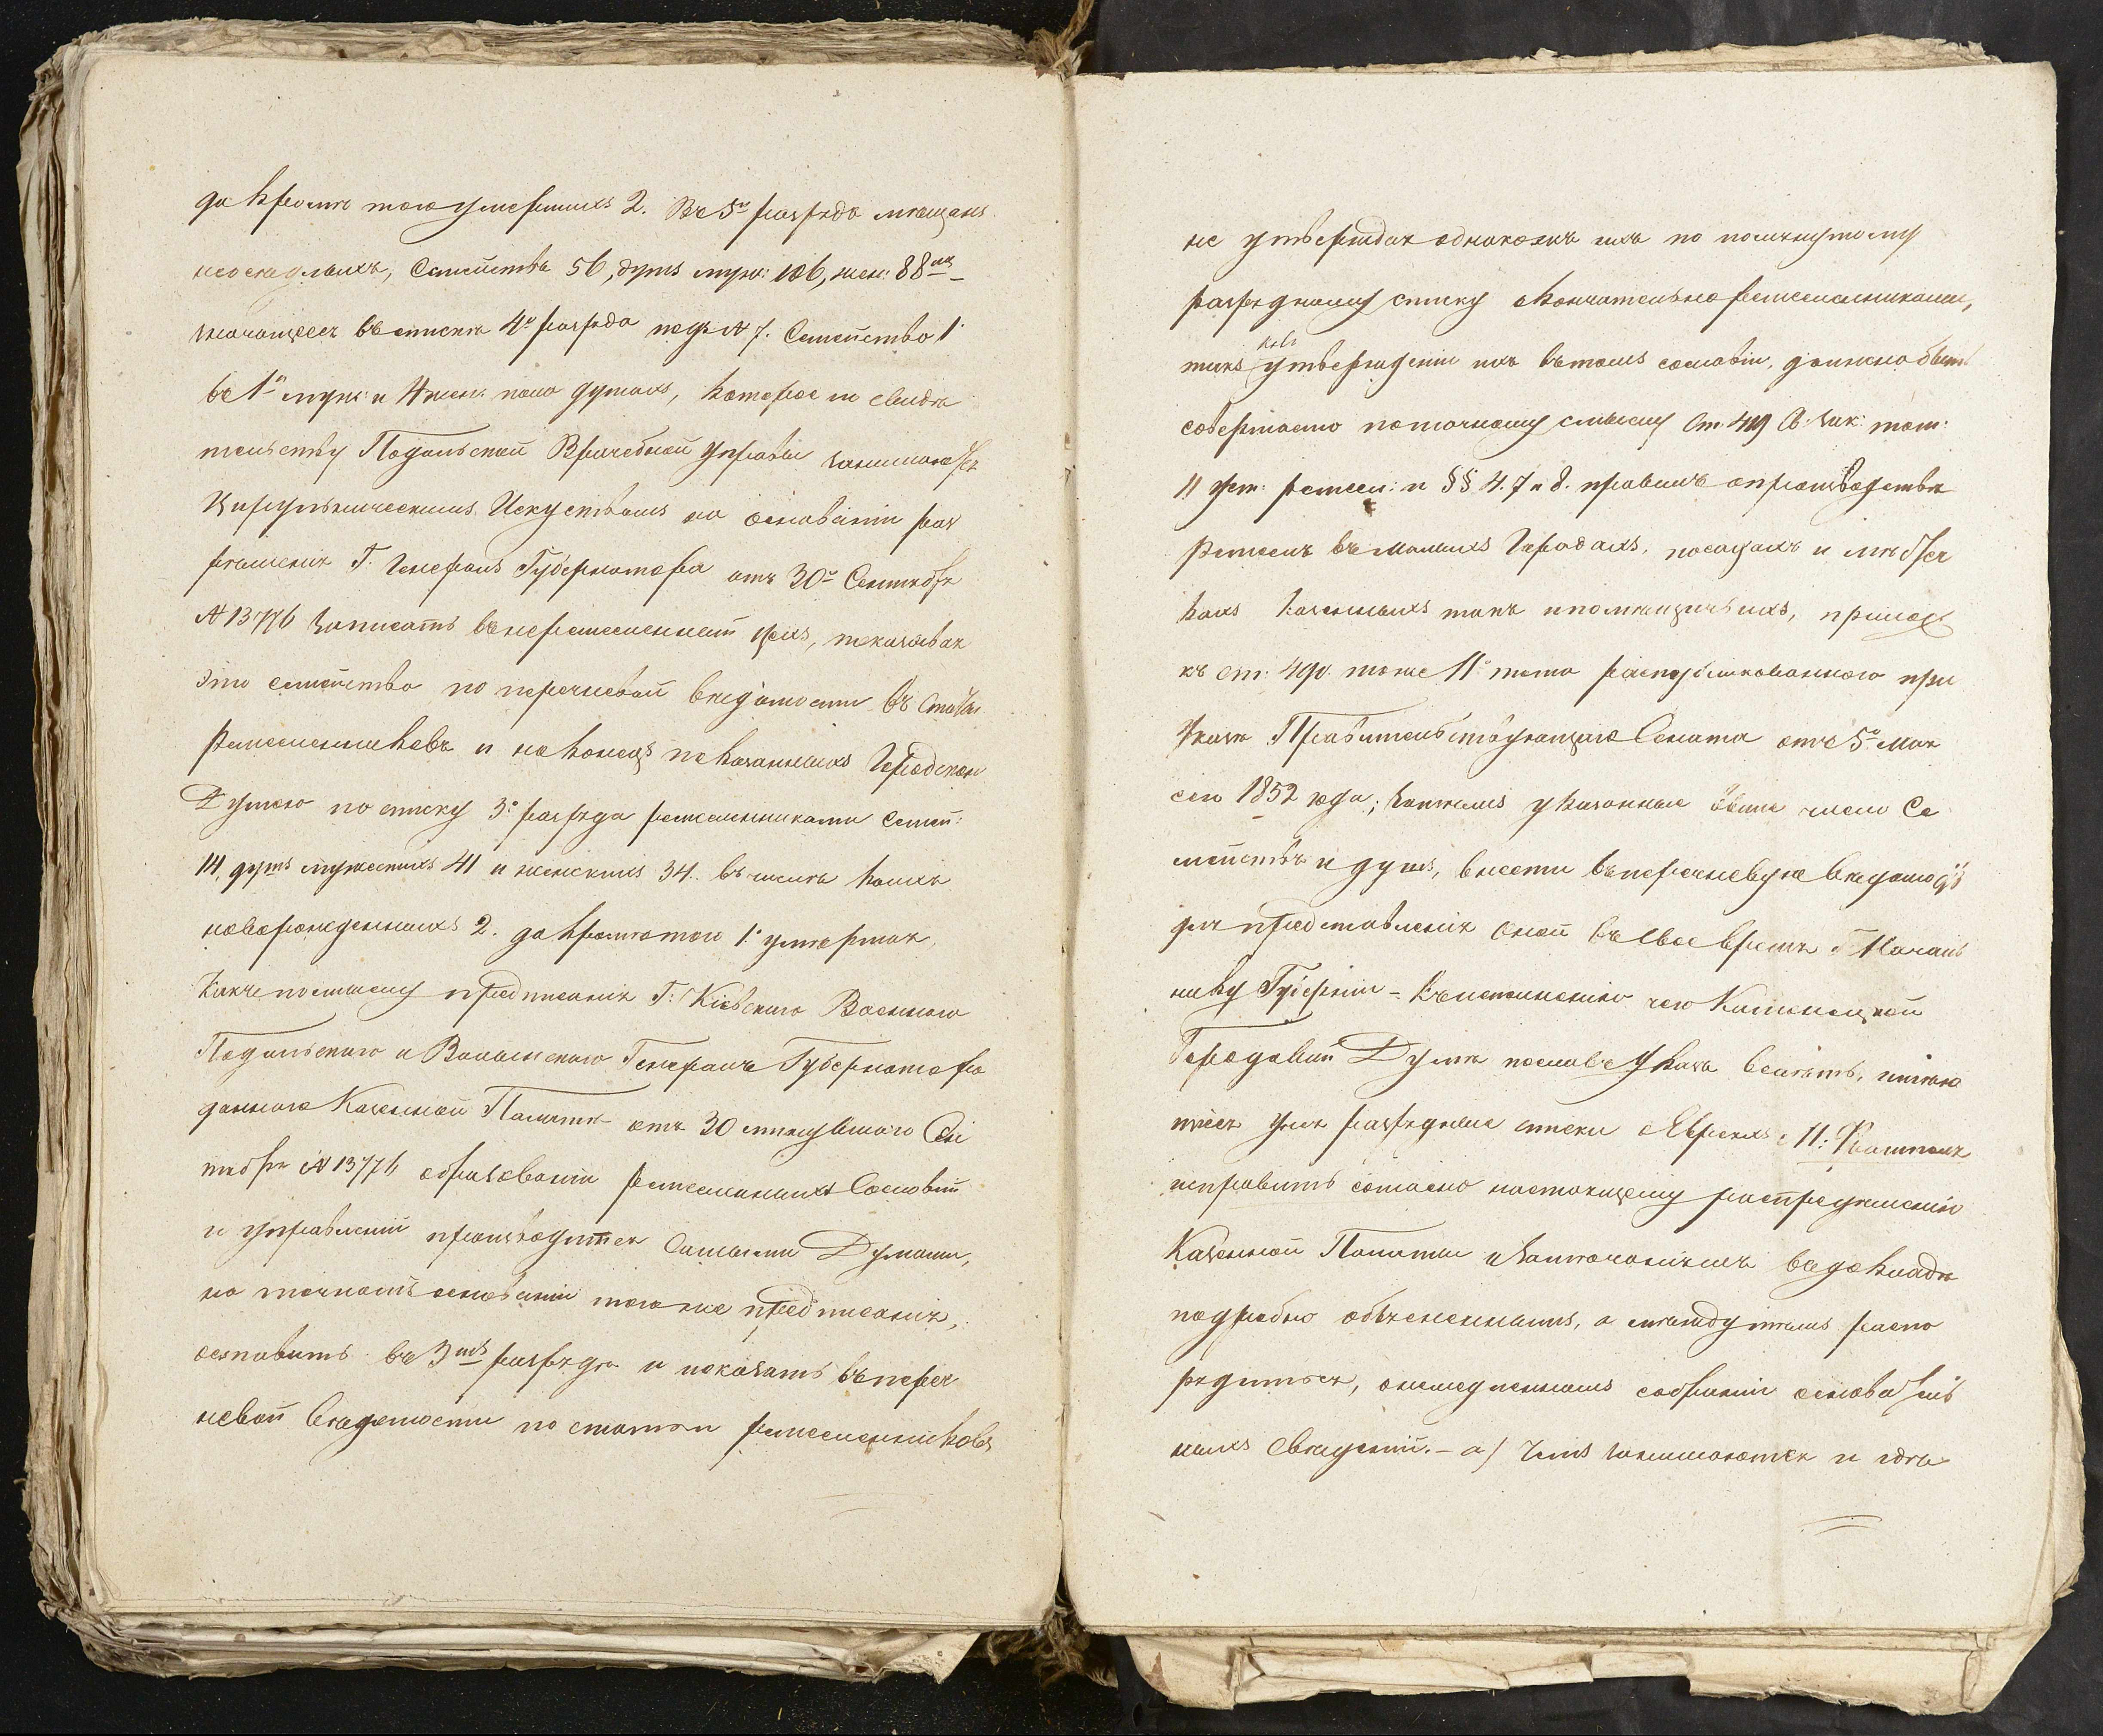 да кромѣ того умершихъ 2. Въ 5й разрядъ мѣщанъ
неосѣдлыхъ, Семействъ 56, душъ муж: 106, жен: 88
значащееся въ спискѣ 4го разряда подъ № 7. Семейство 1
въ 1й муж: и 4 жен: пола душахъ, которое по свидѣ
тельству Подольской Врачебной Управы занимается
Цирульническимъ Искуствомъ на основаніи раз
рѣшенія Г. Генералъ Губернатора отъ 30го Сентября
№ 13776 записать въ неремесленный цехъ, показавъ
это семейство по перечневой вѣдомости въ статьи
ремесленниковъ и наконецъ показанныхъ Городскою
Думою по списку 3го разряда ремесленниками семей:
14, душъ мужескихъ 41 и женскихъ 34. въ числѣ коихъ
новорожденныхъ 2. да кромѣ того 1. умершая,
какъ по смыслу предписанія Г: Кіевского Военного
Подольского и Волынского Генералъ Губернатора
данного Казенной Палатѣ отъ 30 минувшаго Сен
тября № 13776 образованіи ремесленныхъ Сословій
и управленій производится самыми Думами,
на точномъ основаніи того же предписанія,
оставить въ 3мъ разрядѣ и показать въ переч
невой вѣдомости по статьи ремесленниковъ
не утверждая однакожъ ихъ по помянутому
разрядному списку окончательно ремесленниками,
такъ какъ утвержденіи ихъ въ томъ сословіи, должно быть
совершаемо по точному смыслу Ст. 419 Св: Зак: том:
11 уст: ремесл: и §§ 4. 7 и 8. правилъ о производствѣ
ремеслъ въ малыхъ Городахъ, посадахъ и мѣстеч
кахъ казенныхъ такъ и помѣщичьихъ, прилож
къ ст: 490. тогоже 11го тома распубликованного при
Указѣ Правительствующаго Сената отъ 5го Мая
сего 1852 года; затемъ указанные выше число Се
мействъ и душъ, внести въ перечневую вѣдомость
для представленія оной въ свое время Г. Началь
нику Губерніи – Къ исполненію чего Каменецкой
Городовой Думѣ послать Указъ велѣть, имѣю
щіеся у нея разрядные списки о Евреяхъ
исправить согласно настоящему распредѣленію
Казенной Палаты и замѣчаніямъ въ докладѣ
подробно объясненнымъ, а между тѣмъ распо
рядиться, о немедленномъ собраніи основатель
ныхъ свѣденій. – а) Чемъ занимаются и гдѣ